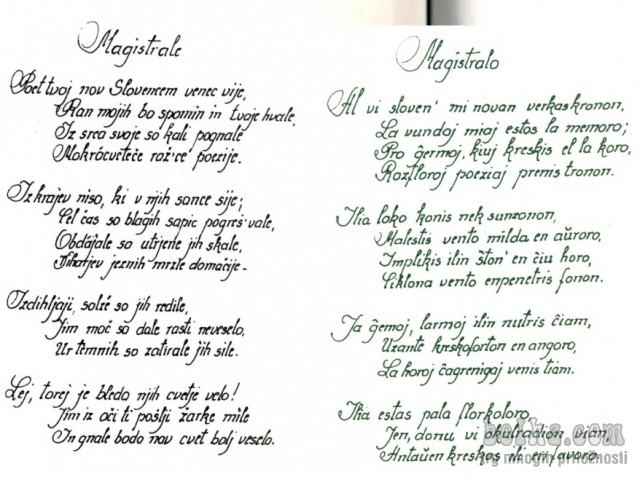 Magistrale
Poet tvoj nov Slovencem venec vije,
Ran mojih bo spomin in tvoje hvale,
Iz srca svoje so kali pognale
Mokrócvéteče rož'ce poezije.
Iz krajev niso, ki v njih sonce sije;
Cel čas so blagih sapic pogreš'vale,
Obdájale so utrjene jih skale,
Viharjev jeznih mrzle domačije.
Izdihljaji, solzé so jih redile,
Jim moč so dale rasti neveselo,
Ur temnih so zatirale jih sile.
Lej, torej je bledo njih cvetje velo!
Jim iz oči ti pošlji žarke mile
In gnale bodo nov cvet bolj veselo.
Magistralo
Al vi sloven' mi novan verkas kronon,
La vundoj miaj estos la memoro;
Pro ĝermoj, kiuj kreskis el la koro,
Rozfloroj poeziaj prenis tronon.
Ilia loko konis nek sunzonon,
Malestis vento milda en aŭroro,
Implikis ilin ŝton' en ĉiu horo,
Ciklona vento enpenetris fonon.
Ja ĝemoj, larmoj ilin nutris ĉiam,
Uzante kreskoforton en angoro,
La horoj ĉagrenigaj venis tiam.
Ilia estas pala florkoloro,
Jen, donu vi okulradion vian,
Antaŭen kreskos ili en favoro.
bolha.com
trg mnogih priložnosti